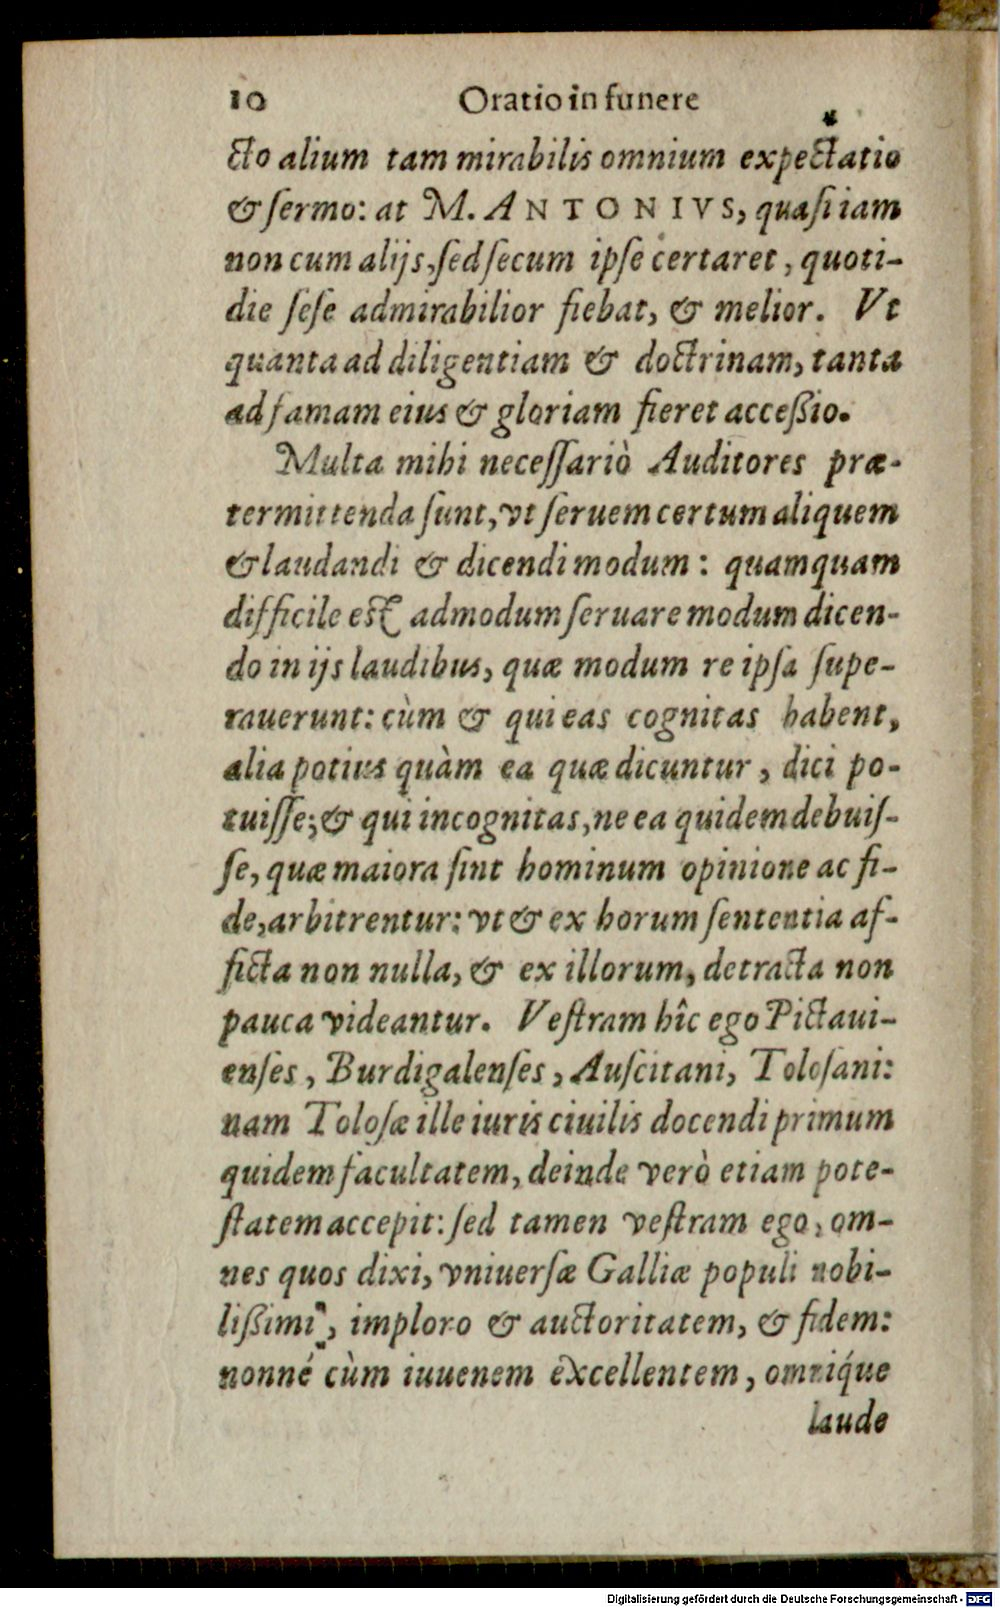 10 Oratio in funere
cto alium tam mirabilis omnium expectatio
& sermo: at M. ANTONIVS, quasi iam
non cum alijs, sed secum ipse certaret, quoti-
die sese admirabilior fiebat, & melior. Vt
quanta ad diligentiam & doctrinam, tanta
ad famam eius & gloriam fieret acceßio.
Multa mihi necessariò Auditores præ-
termittenda sunt, vt seruem certum aliquem
& laudandi & dicendi modum: quamquam
difficile est admodum seruare modum dicen-
do in ijs laudibus, quæ modum re ipsa supe-
rauerunt: cùm & qui eas cognitas habent,
alia potius quàm ea quæ dicuntur, dici po-
tuisse; & qui incognitas, ne ea quidem debuis-
se, quæ maiora sint hominum opinione ac fi-
de, arbitrentur: vt & ex horum sententia af-
ficta non nulla, & ex illorum, detracta non
pauca videantur. Vestram hîc ego Pictaui-
enses, Burdigalenses, Auscitani, Tolosani:
nam Tolosæ ille iuris ciuilis docendi primum
quidem facultatem, deinde verò etiam pote-
statem accepit: sed tamen vestram ego, om-
nes quos dixi, vniuersæ Galliæ populi nobi-
lißimi, imploro & auctoritatem, & fidem:
nonné cùm iuuenem excellentem, omniq́ue
laude
Digitalisierung gefördert durch die Deutsche Forschungsgemeinschaft - DFG